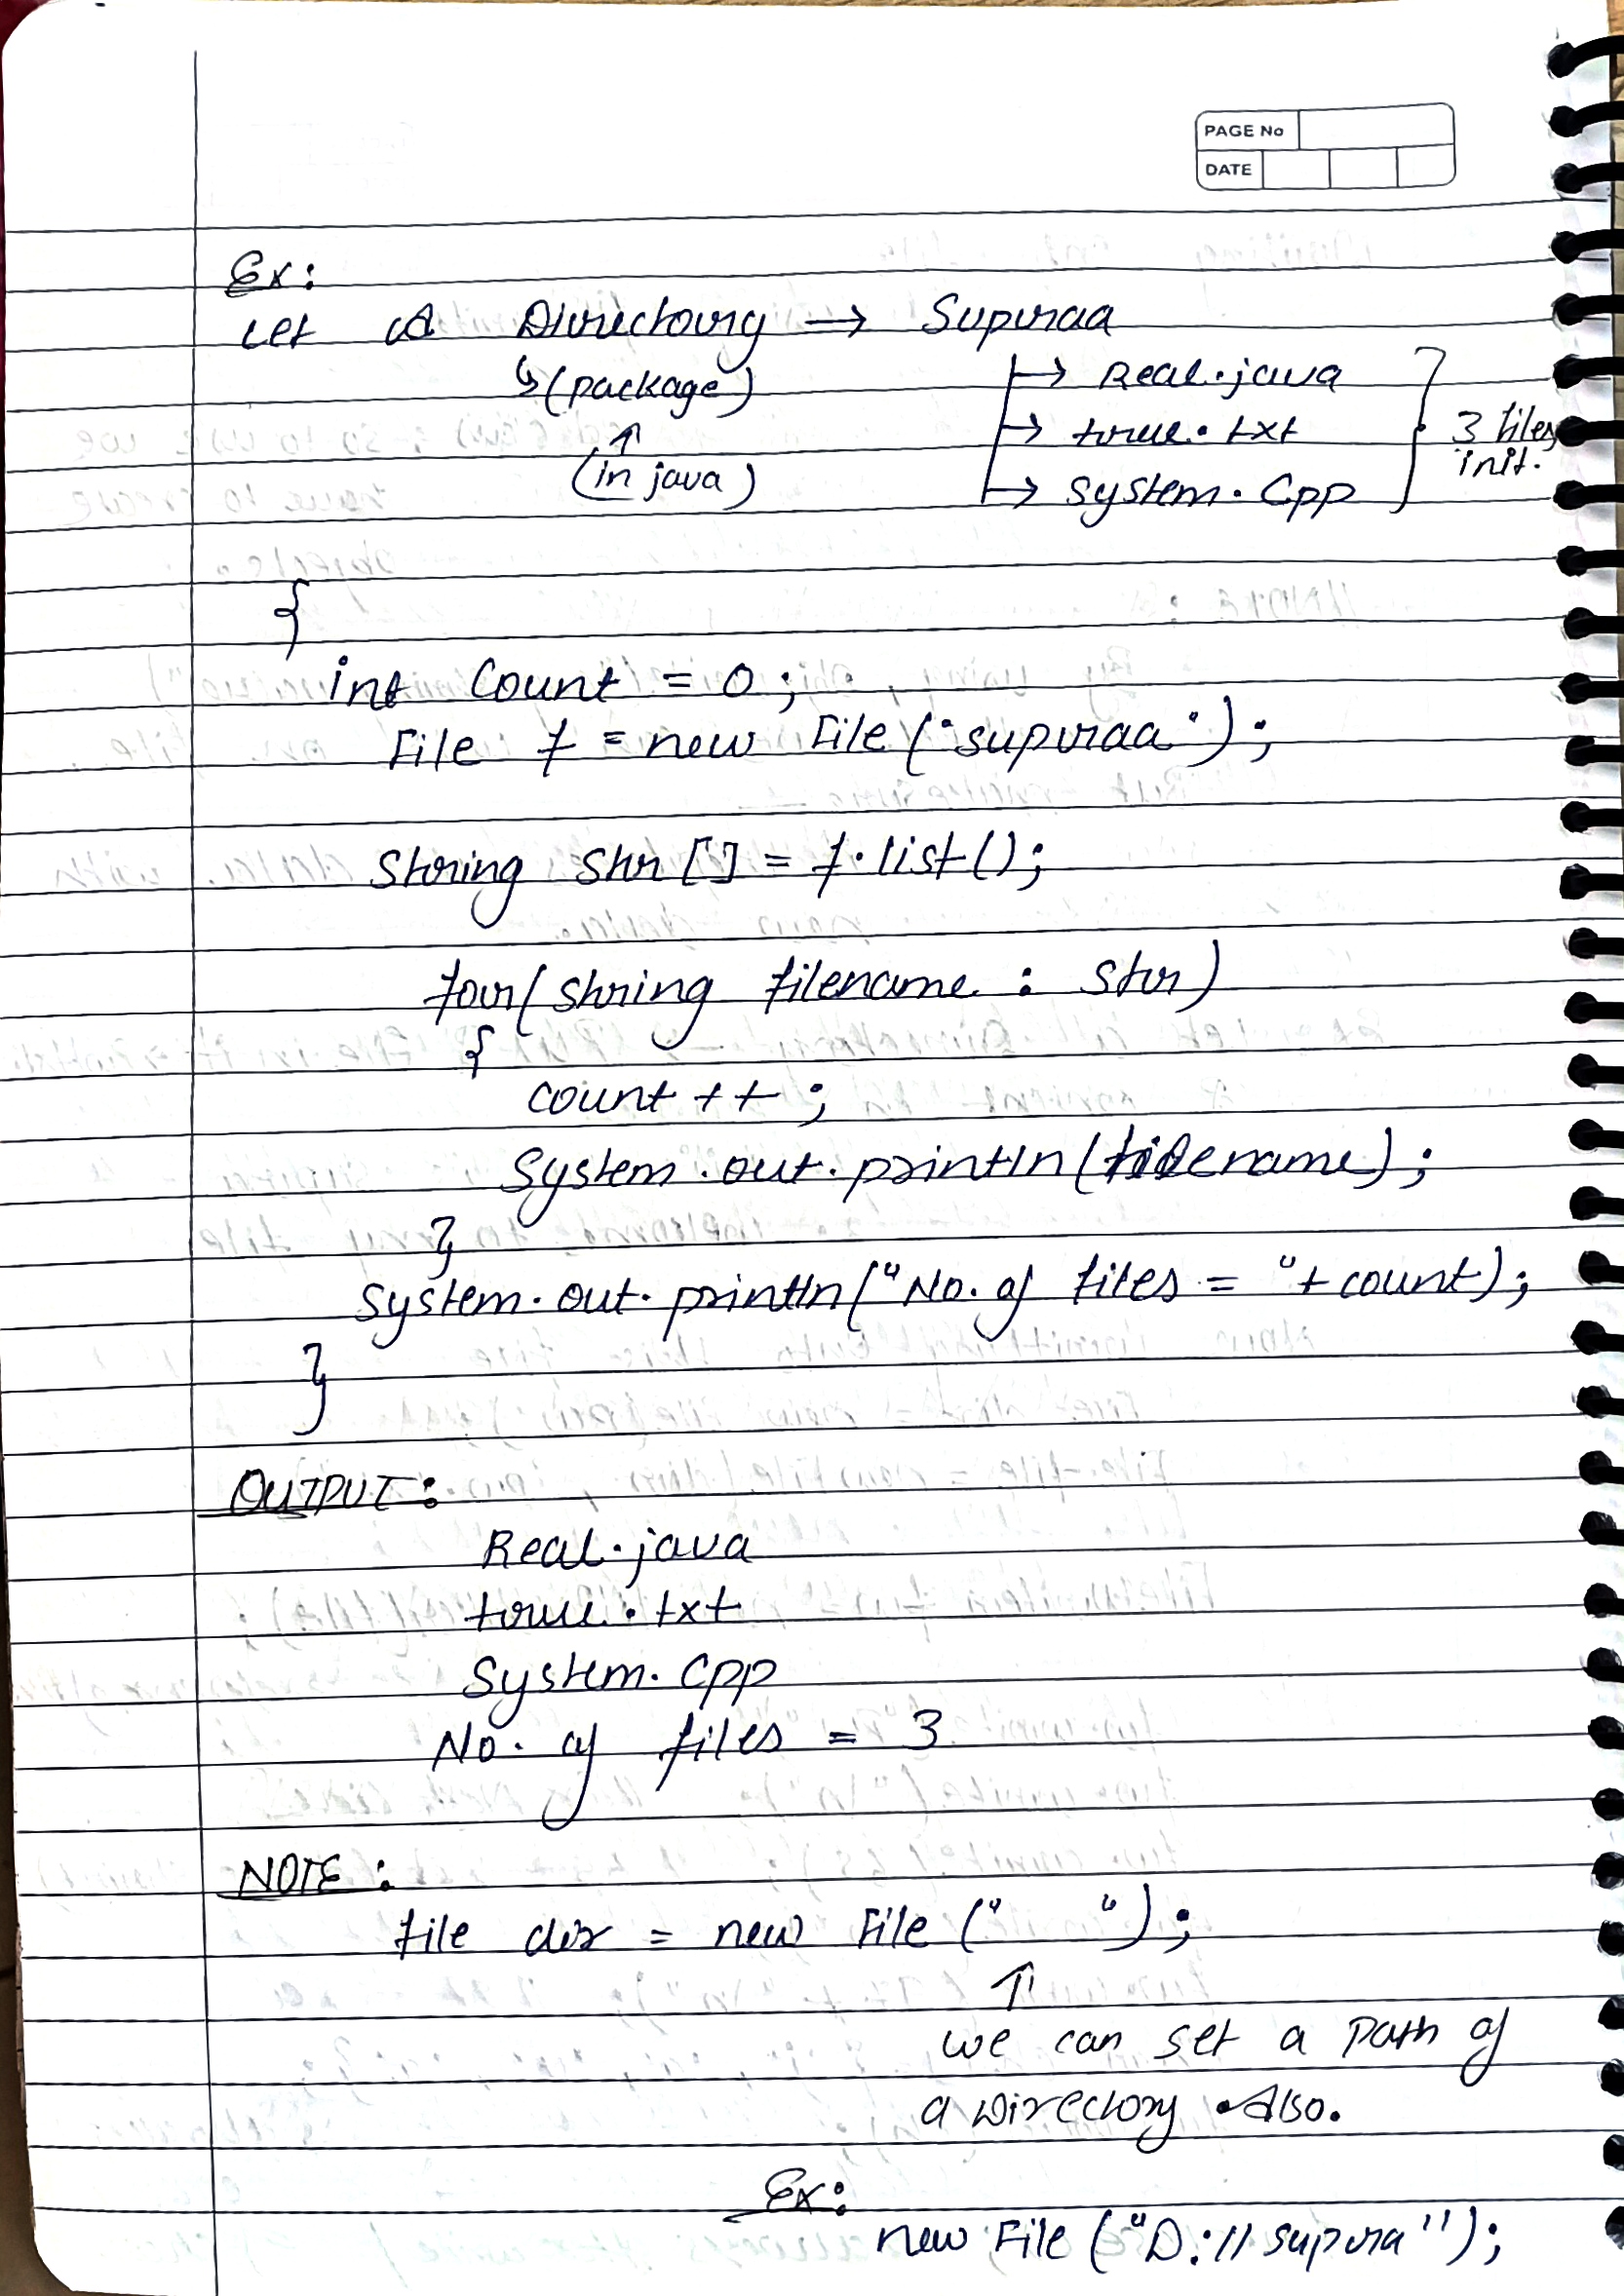 PAGE No
DATE
Ex:
Let a Directory => Supraa
↳(package)
→ Real.java
↑
(in java)
→ true.txt
→ System.Cpp
3 files
init.
{
int Count = 0;
File f = new File ("supraa");
String Str [] = f.list();
for(String filename : Str)
{
count ++;
System.out.println(filename);
}
System.out.println("No. of files = "+ count);
}
OUTPUT:
Real.java
true.txt
System.Cpp
No. of files = 3
NOTE:
File dir = new File (" ");
↑
we can set a path of
a Directory Also.
Ex:
new File ("D://supra");